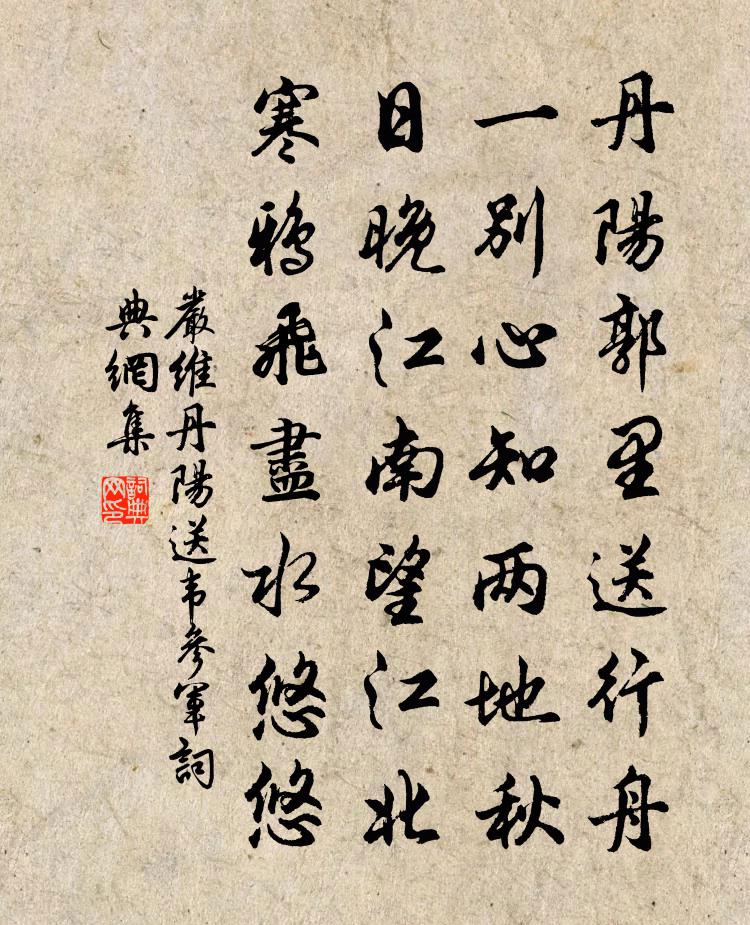 丹陽郭里送行舟
一别心知两地秋
日晚江南望江北
寒鸦飛盡水悠悠
嚴維丹陽送韦參軍詞
典網集
詞典
网印